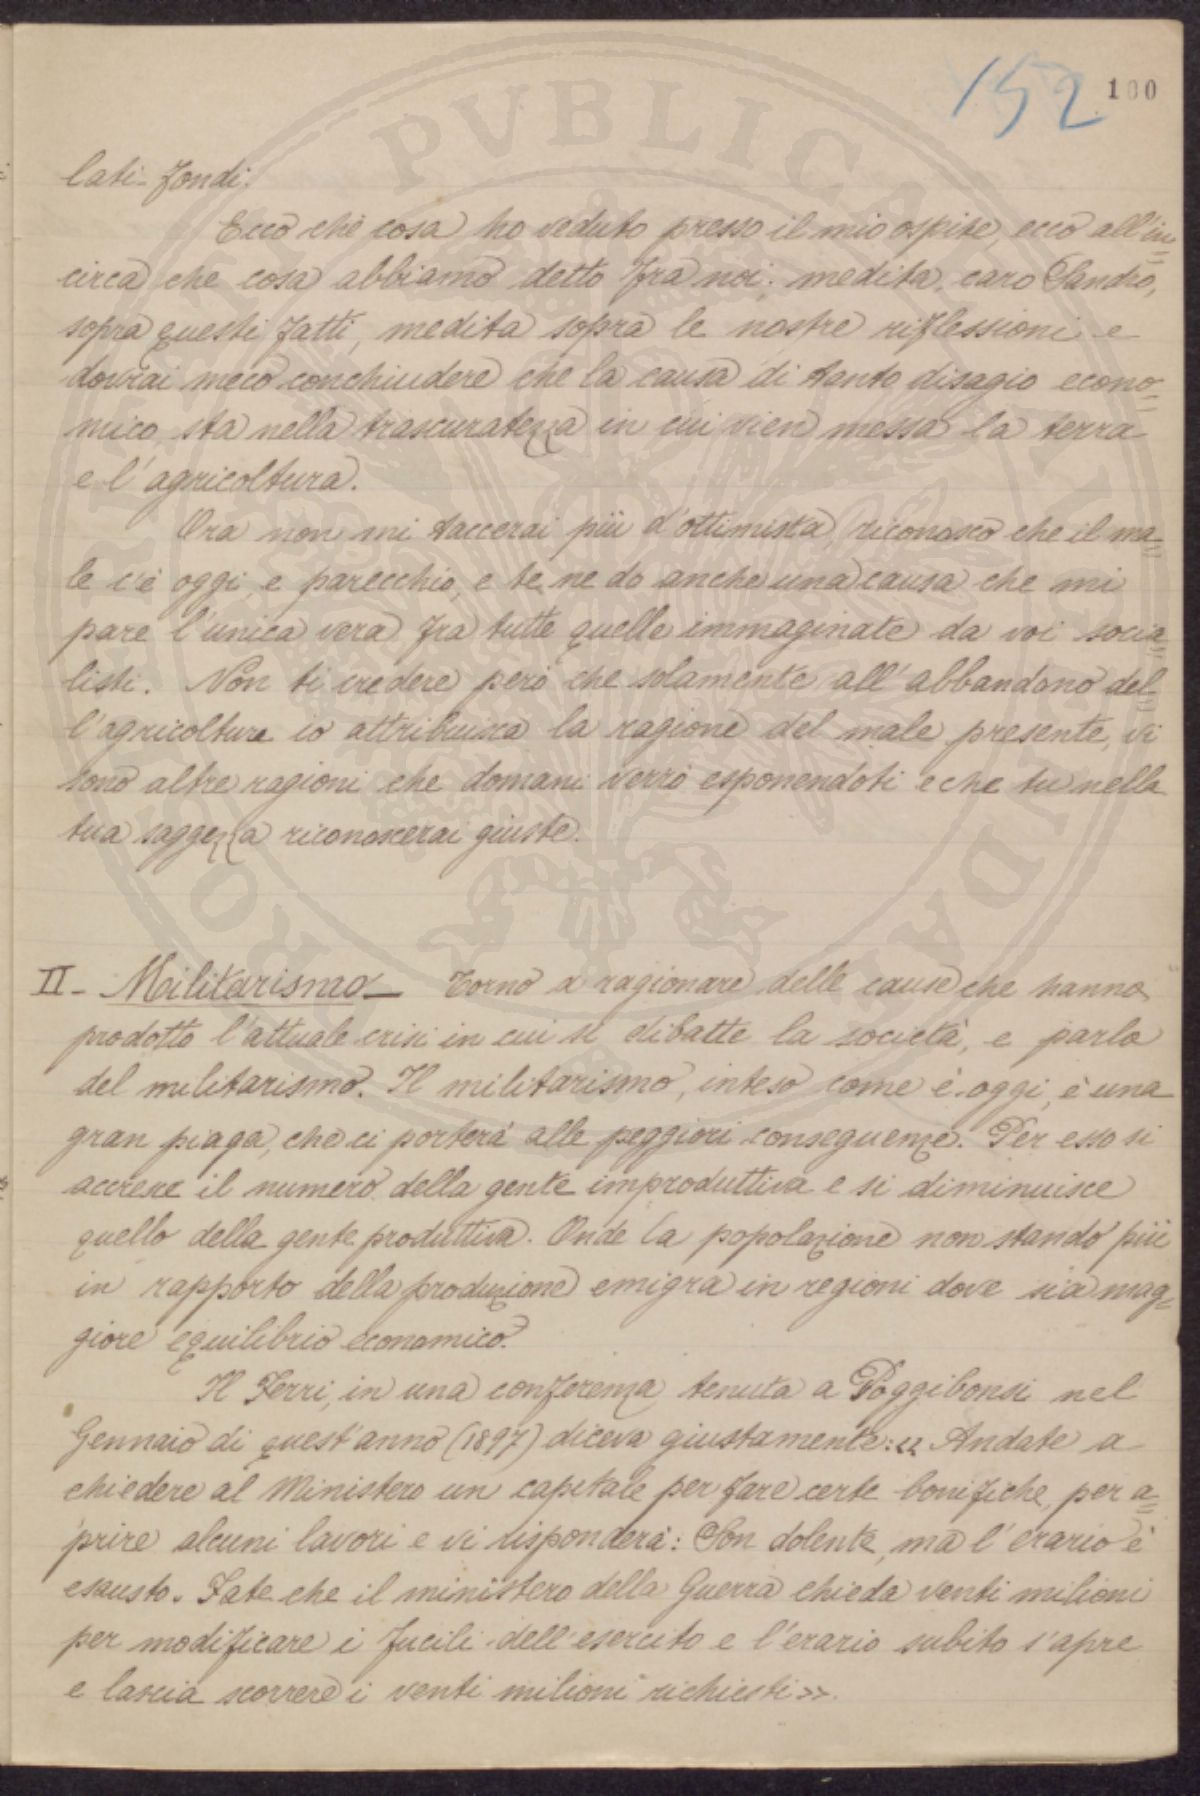 152 100
lati-fondi.
Ecco che cosa ho veduto presso il mio ospite, ecco all'in=
circa che cosa abbiamo detto fra noi; medita, caro Sandro,
sopra questi fatti, medita sopra le nostre riflessioni e
dovrai meco conchiudere che la causa di tanto disagio econo=
mico, sta nella trascuratezza in cui vien messa la terra
e l'agricoltura.
Ora non mi taccerai più d'ottimista, riconosco che il ma=
le c'è oggi, e parecchio, e te ne do anche una causa che mi
pare l'unica vera fra tutte quelle immaginate da voi socia=
listi. Non ti credere però che solamente all'abbandono del=
l'agricoltura io attribuisca la ragione del male presente, vi
sono altre ragioni che domani verrò esponendoti e che tu nella
tua saggezza riconoscerai giuste.
II - Militarismo - Torno a ragionare delle cause che hanno
prodotto l'attuale crisi in cui si dibatte la società, e parlo
del militarismo. Il militarismo, inteso come è oggi, è una
gran piaga, che ci porterà alle peggiori conseguenze. Per esso si
accresce il numero della gente improduttiva e si diminuisce
quello della gente produttiva. Onde la popolazione non stando più
in rapporto della produzione emigra in regioni dove sia mag=
giore equilibrio economico.
Il Ferri, in una conferenza tenuta a Poggibonsi nel
Gennaio di quest'anno (1897) diceva giustamente: « Andate a
chiedere al Ministero un capitale per fare certe bonifiche, per a=
prire alcuni lavori e vi risponderà: Son dolente, ma l'erario è
esausto. Fate che il ministero della Guerra chieda venti milioni
per modificare i fucili dell'esercito e l'erario subito s'apre
e lascia scorrere i venti milioni richiesti ».
PVBLICA